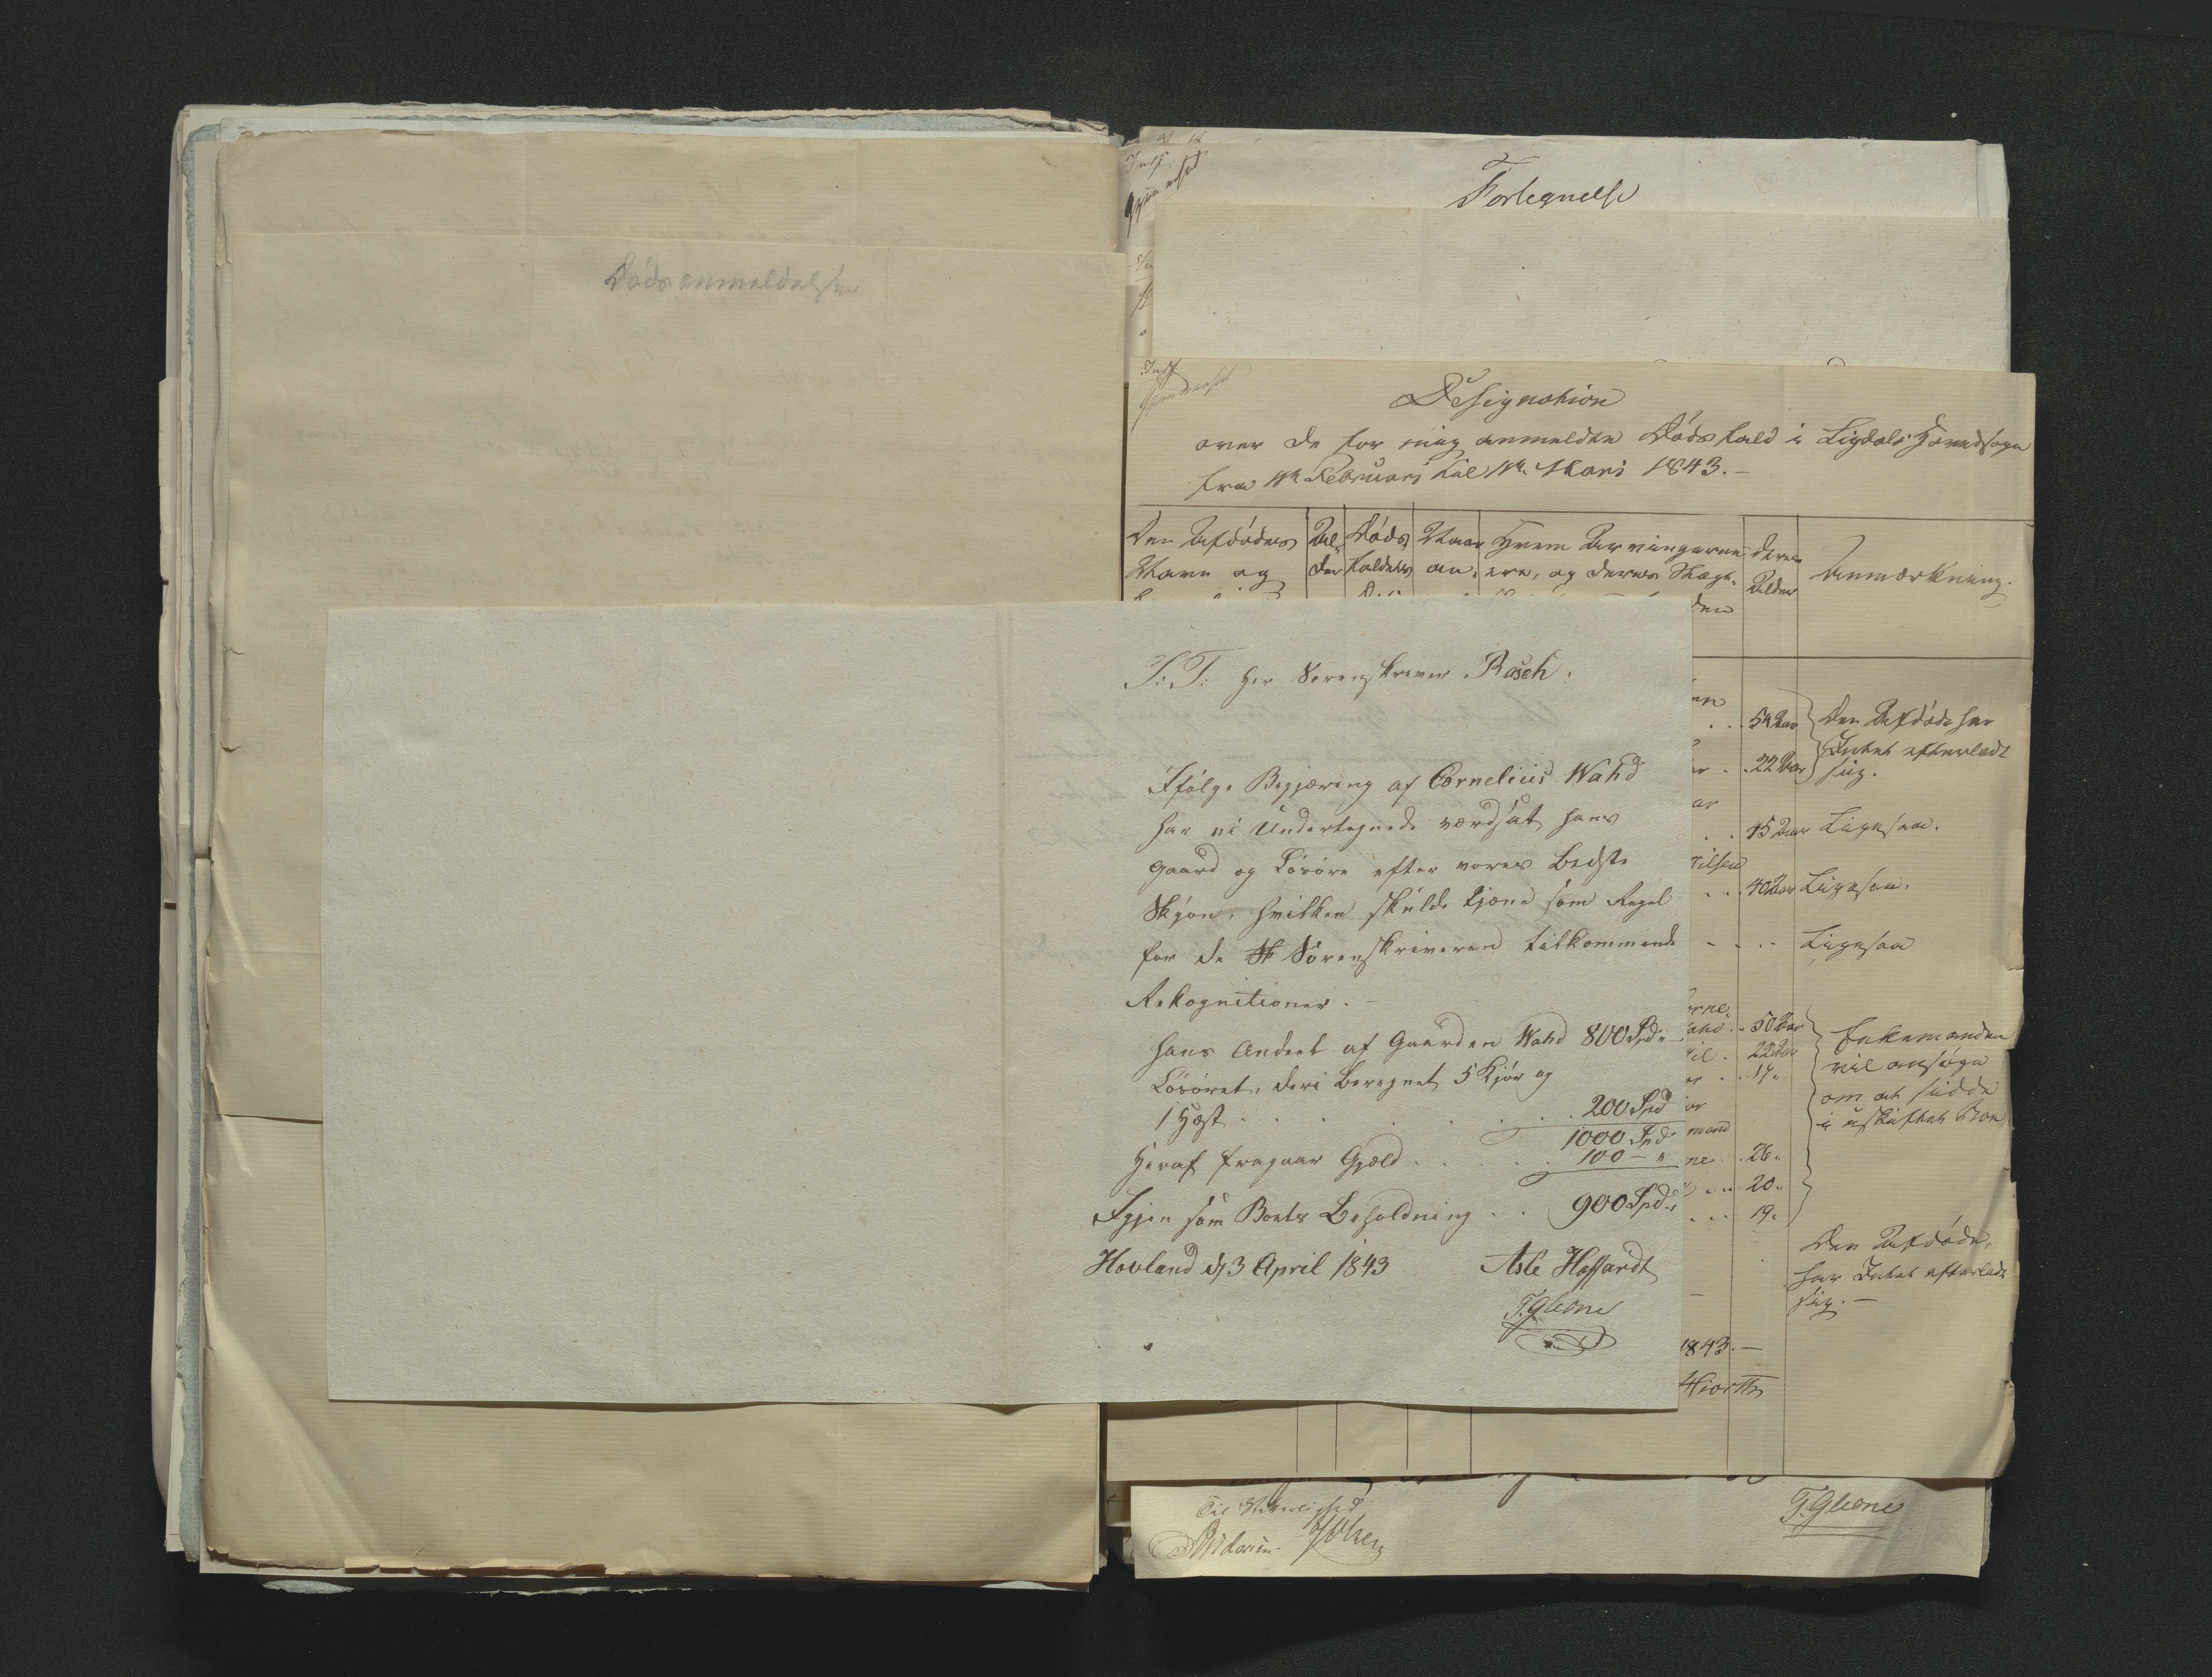 Dødsanmeldelser
Fortegnelse
Designation
over de for mig anmeldte Dødsfald i Sigdals Hovedsogn
fra 1ste Februari til 1ste Marts 1843.-
Den Afdødes
Navn og
Al-
der
Døds
faldets
Naar
an-
Hvem Arvingerne
ere, og deres Slægt-
deres
Alder
Anmærkning.
54 Aar
Den Afdøde har
Intet efterladt
sig.
22 Aar
45 Aar Ligesaa.
40 Aar Ligesaa.
Ligesaa
50 Aar
22 Aar
17 "
26 "
20 "
19 "
Enkemanden
vil ansøge
om at sidde
i uskiftet Boe
Den Afdøde
har Intet efterladt
sig.-
1843.-
Hiorth
S:T: Hr Sorenskriver Rasch:
Ifølge Begjæring af Cornelius Wahd
har vi Undertegnede værdsat hans
Gaard og Løsøre efter vores Bedste
Skjøn, hvilken skulde tjene som Regel
for de Sörenskriveren tilkommende
Rekognitioner.-
Hans Andeel af Gaarden Wahd 800 Spd
Løsøret, deri beregnet 5 Kjør og
1 Hest . . . . 200 Spd
1000 Spd
Heraf fragaar Gjæld . . . . 100 - "
Igjen som Boets Beholdning . . 900 Spd
Hovland d 3 April 1843
Asle Hoffardt
T. Gleone
Til Vitterlighed
T. Gleone